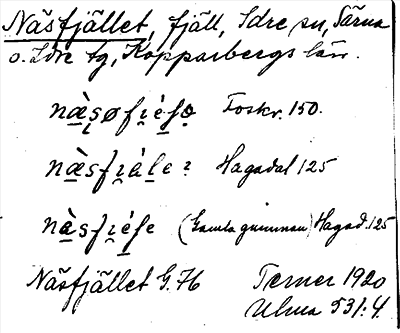 Näsfjället, fjäll, Idre sn, Särna
o. Idre tg, Kopparbergs län.
næ̀søfi̯éɫo Foskr. 150.
næ̀sfi̯àle ? Hagadal 125
nàsfi̯éɫe (Gamla gumman) Hagad. 125
Näsfjället G. 76 Terner 1920
Ulma 531:4.